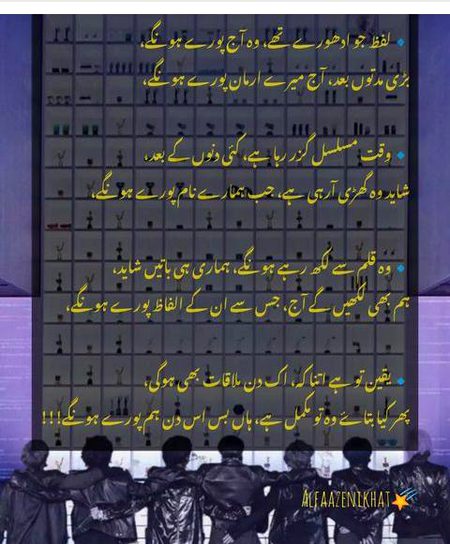 لفظ جو ادھورے تھے، وہ آج پورے ہونگے،
بڑی مدتوں بعد، آج میرے ارمان پورے ہونگے،
وقت مسلسل گزر رہا ہے، کئی دنوں کے بعد،
شاید وہ گھڑی آرہی ہے، جب ہمارے نام پورے ہونگے،
وہ قلم سے لکھ رہے ہونگے، ہماری ہی باتیں شاید،
ہم بھی لکھیں گے آج، جس سے ان کے الفاظ پورے ہونگے،
یقین تو ہے اتنا کہ، اک دن ملاقات بھی ہوگی،
پھر کیا بتائے وہ تو مکمل ہے، ہاں بس اس دن ہم پورے ہونگے!!!
ALFAAZENIKHAT